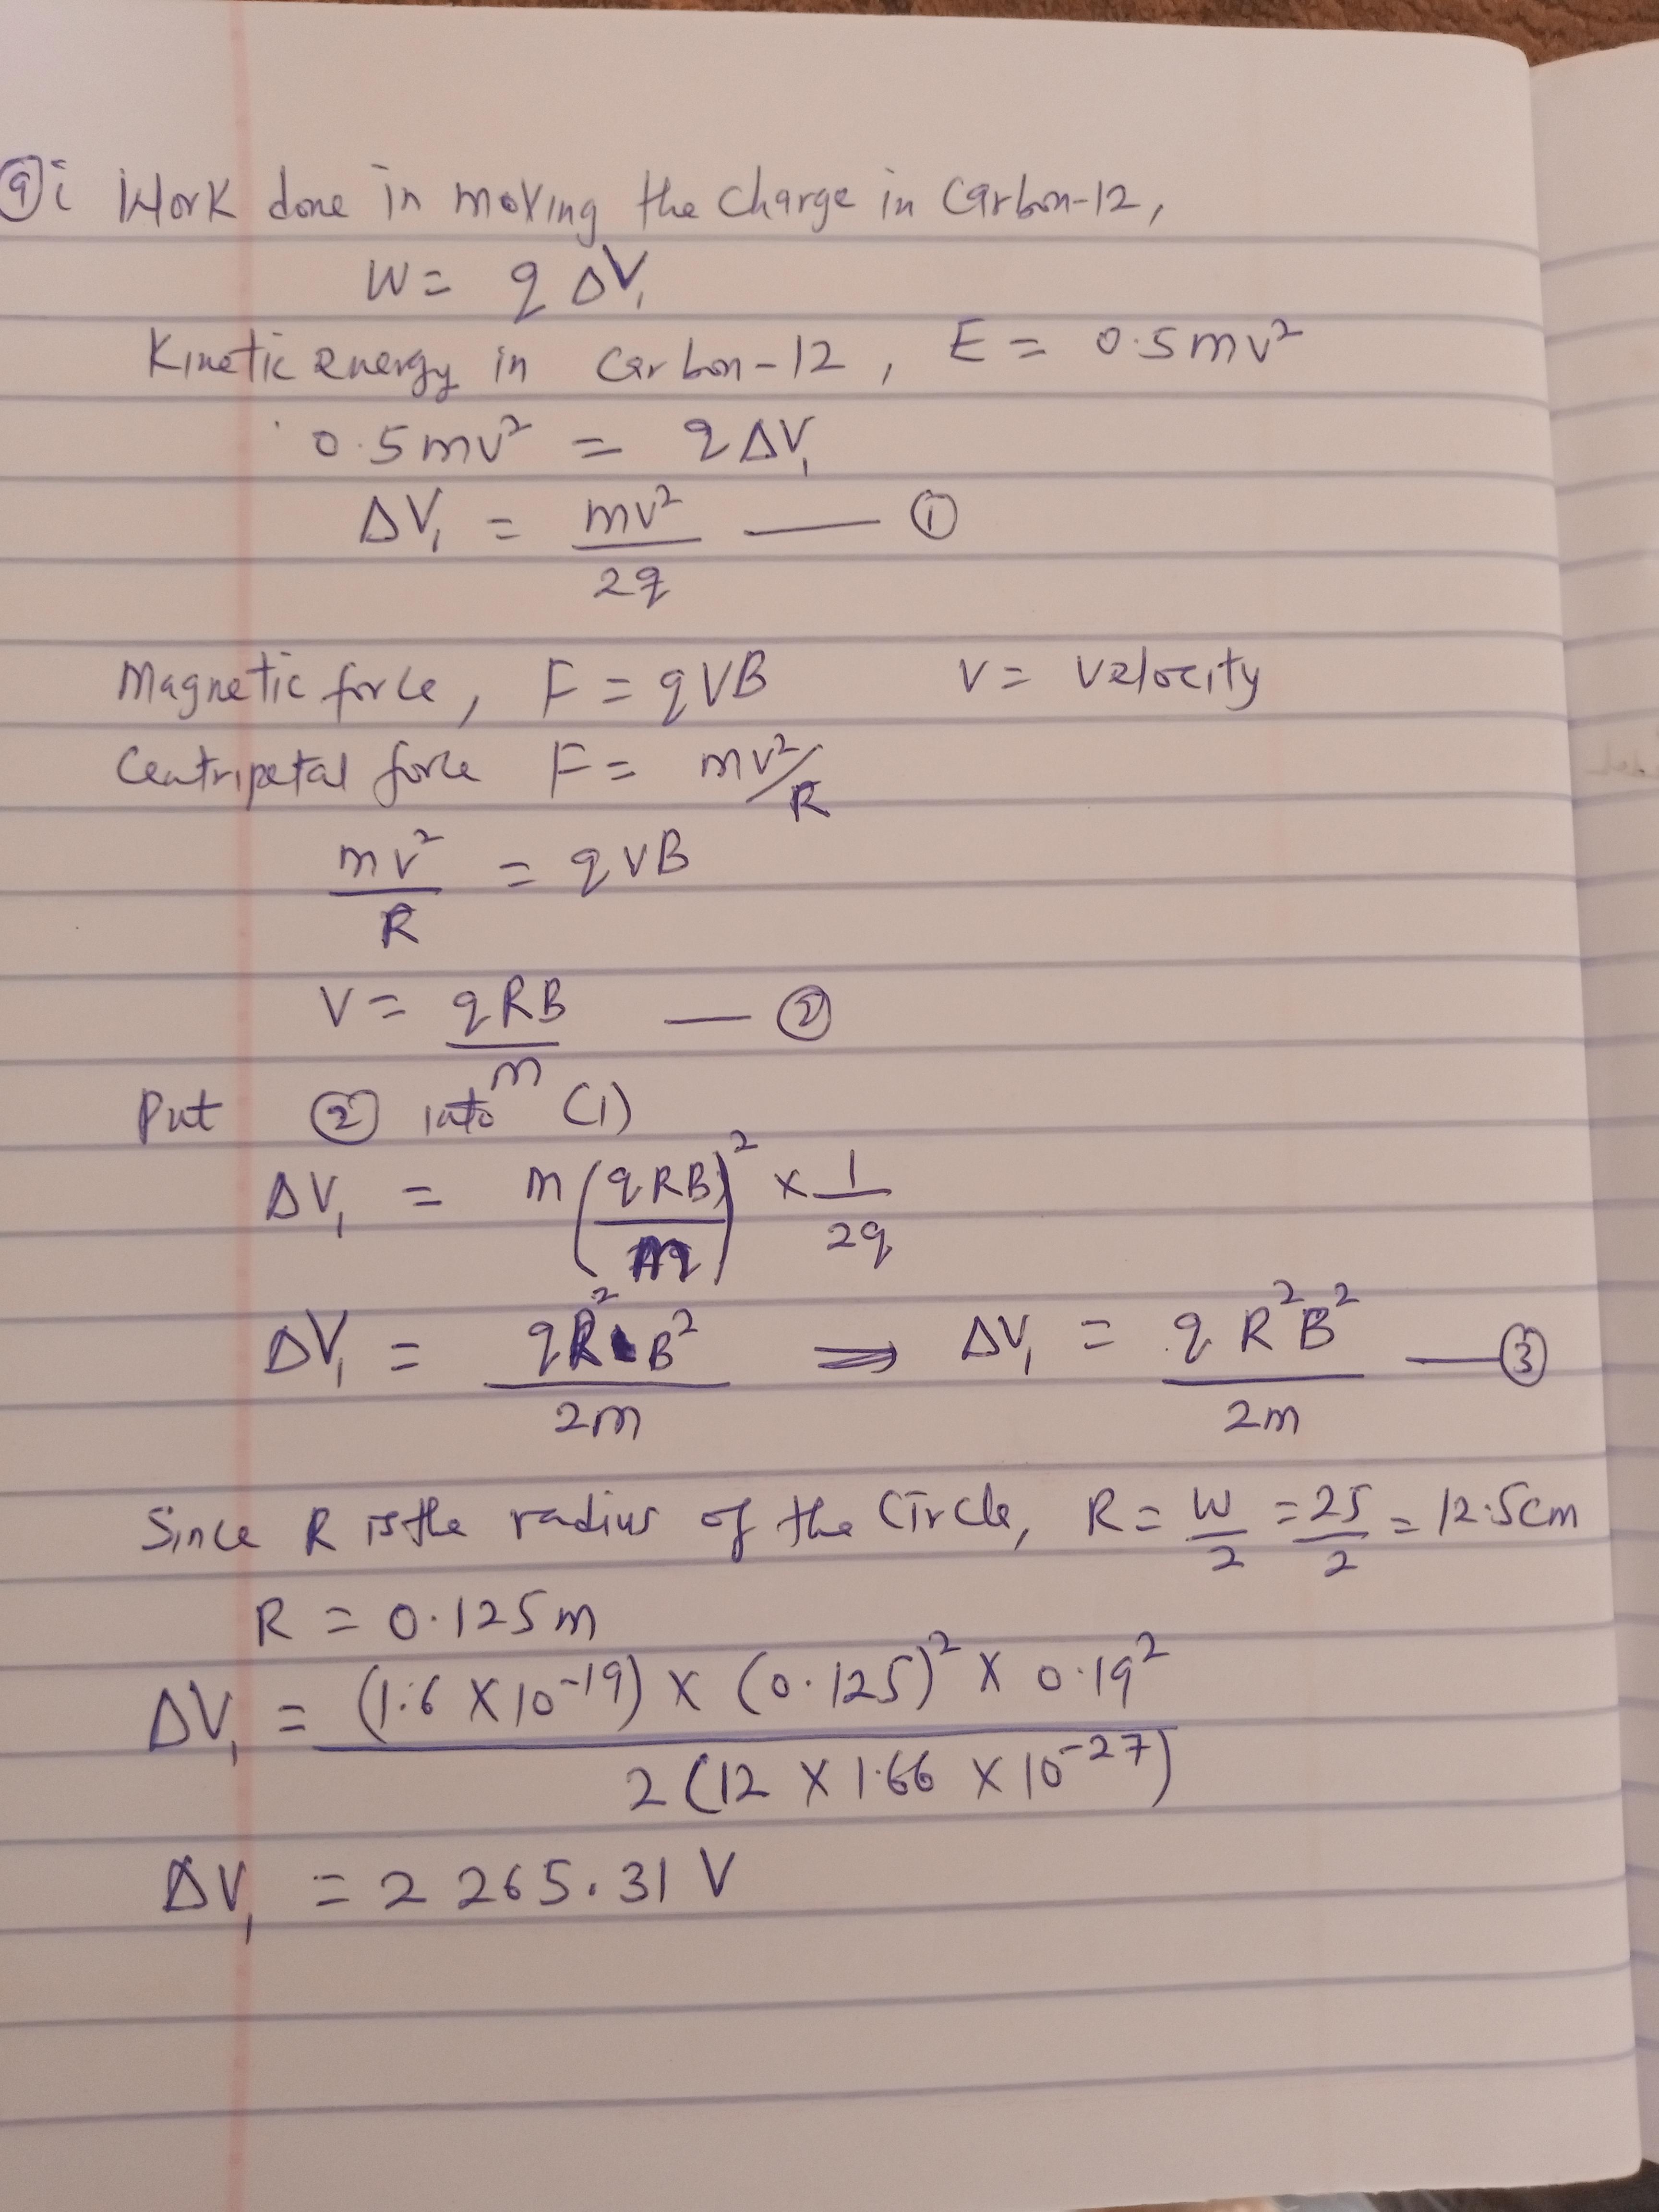 9 i Work done in moving the charge in Carbon-12,
W = q ΔV₁
Kinetic energy in Carbon-12, E = 0.5mv²
0.5mv² = qΔV₁
ΔV₁ = mv²/2q — ①
Magnetic force, F = qVB V = Velocity
Centripetal force F = mv²/R
mv²/R = qVB
V = qRB/m — ②
Put ② into (1)
ΔV₁ = m(qRB/m)² × 1/2q
ΔV₁ = qR²B²/2m ⟹ ΔV₁ = qR²B²/2m — ③
Since R is the radius of the Circle, R = W/2 = 25/2 = 12.5cm
R = 0.125m
ΔV₁ = (1.6 × 10⁻¹⁹) × (0.125)² × 0.19² / 2(12 × 1.66 × 10⁻²⁷)
ΔV₁ = 2265.31 V